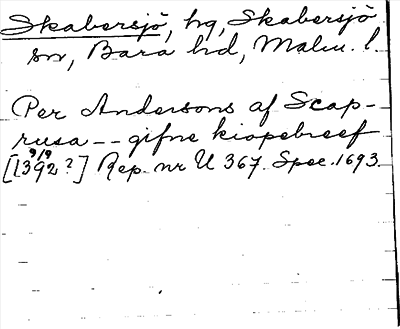 Skabersjö, hg, Skabersjö
sn, Bara hd, Malm. l.
Per Andersons af Scap-
rusa -- gifne kiopebreef
9/9
[1392?] Rep. nr U 367. Spec. 1693.